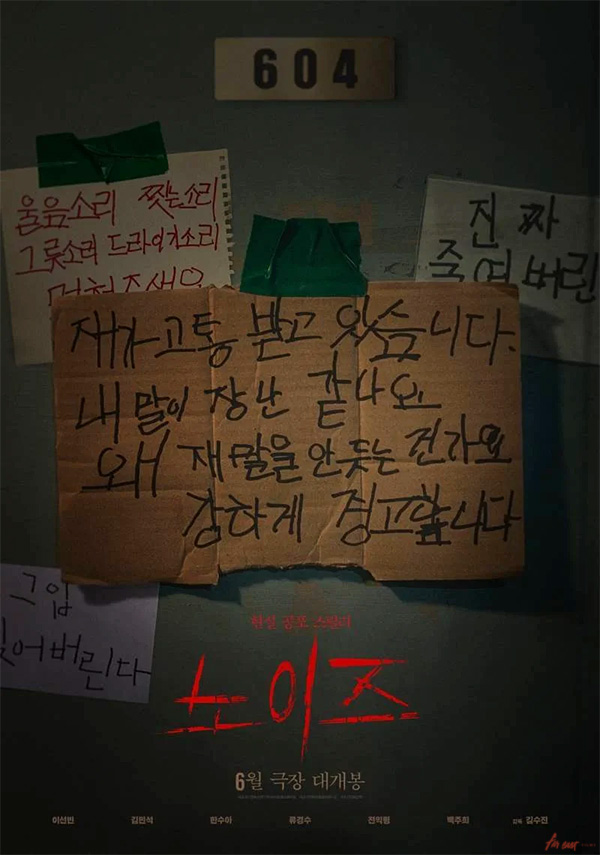 604
울음소리 찢는소리
그릇소리 드라이기소리
진짜
죽여버린
재가 고통 받고 있습니다.
내 말이 장난 같나요
왜 재 말을 안듯는 건가요
강하게 경고합니다
그입
찢어버린다
현실 공포 스릴러
노이즈
6월 극장 대개봉
이선빈 김민석 한수아 류경수 전익령 백주희 감독 김수진